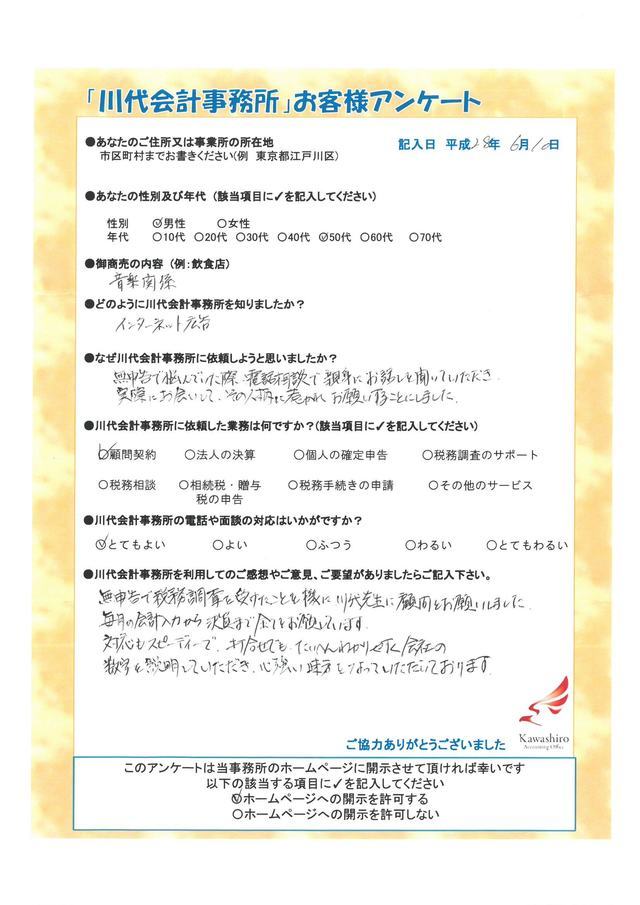 「川代会計事務所」お客様アンケート
●あなたのご住所又は事業所の所在地
市区町村までお書きください(例 東京都江戸川区)
記入日 平成28年 6月10日
●あなたの性別及び年代 (該当項目に✓を記入してください)
性別 ○男性 ○女性
年代 ○10代 ○20代 ○30代 ○40代 ○50代 ○60代 ○70代
●御商売の内容 (例:飲食店)
音楽関係
●どのように川代会計事務所を知りましたか?
インターネット広告
●なぜ川代会計事務所に依頼しようと思いましたか?
無申告で悩んでいた際、電話相談で親身にお話しを聞いていただき
実際にお会いして、その人柄に惹かれお願いすることにしました。
●川代会計事務所に依頼した業務は何ですか?(該当項目に✓を記入してください)
○顧問契約 ○法人の決算 ○個人の確定申告 ○税務調査のサポート
○税務相談 ○相続税・贈与税の申告 ○税務手続きの申請 ○その他のサービス
●川代会計事務所の電話や面談の対応はいかがですか?
○とてもよい ○よい ○ふつう ○わるい ○とてもわるい
●川代会計事務所を利用してのご感想やご意見、ご要望がありましたらご記入下さい。
無申告で税務調査を受けたことを機に川代先生に顧問をお願いしました。
毎月の会計入力から決算まで全てお願いしています。
対応もスピーディーで、打合せでも、たいへんわかりやすく会社の
数字を説明していただき、心強い味方となっていただいております。
Kawashiro
Accounting Office
ご協力ありがとうございました
このアンケートは当事務所のホームページに開示させて頂ければ幸いです
以下の該当する項目に✓を記入してください
○ホームページへの開示を許可する
○ホームページへの開示を許可しない